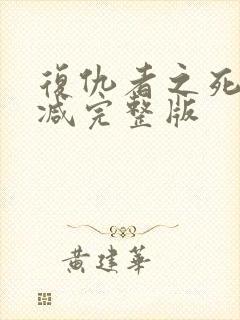 復仇者之死
减完整版
黄建華